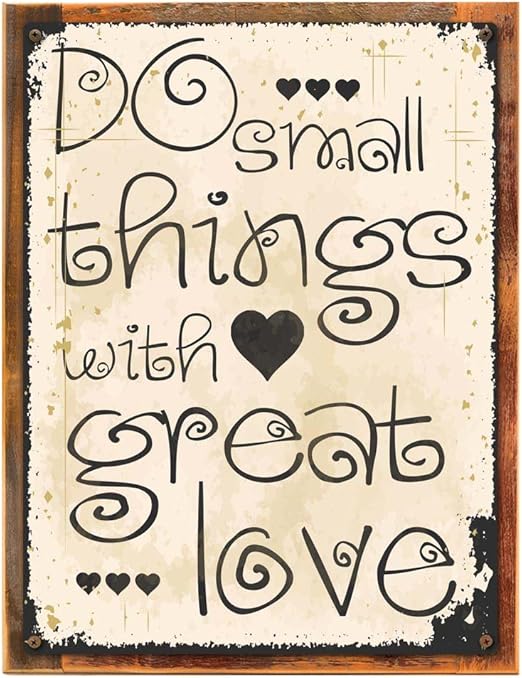 DO
small
things
with
great
love